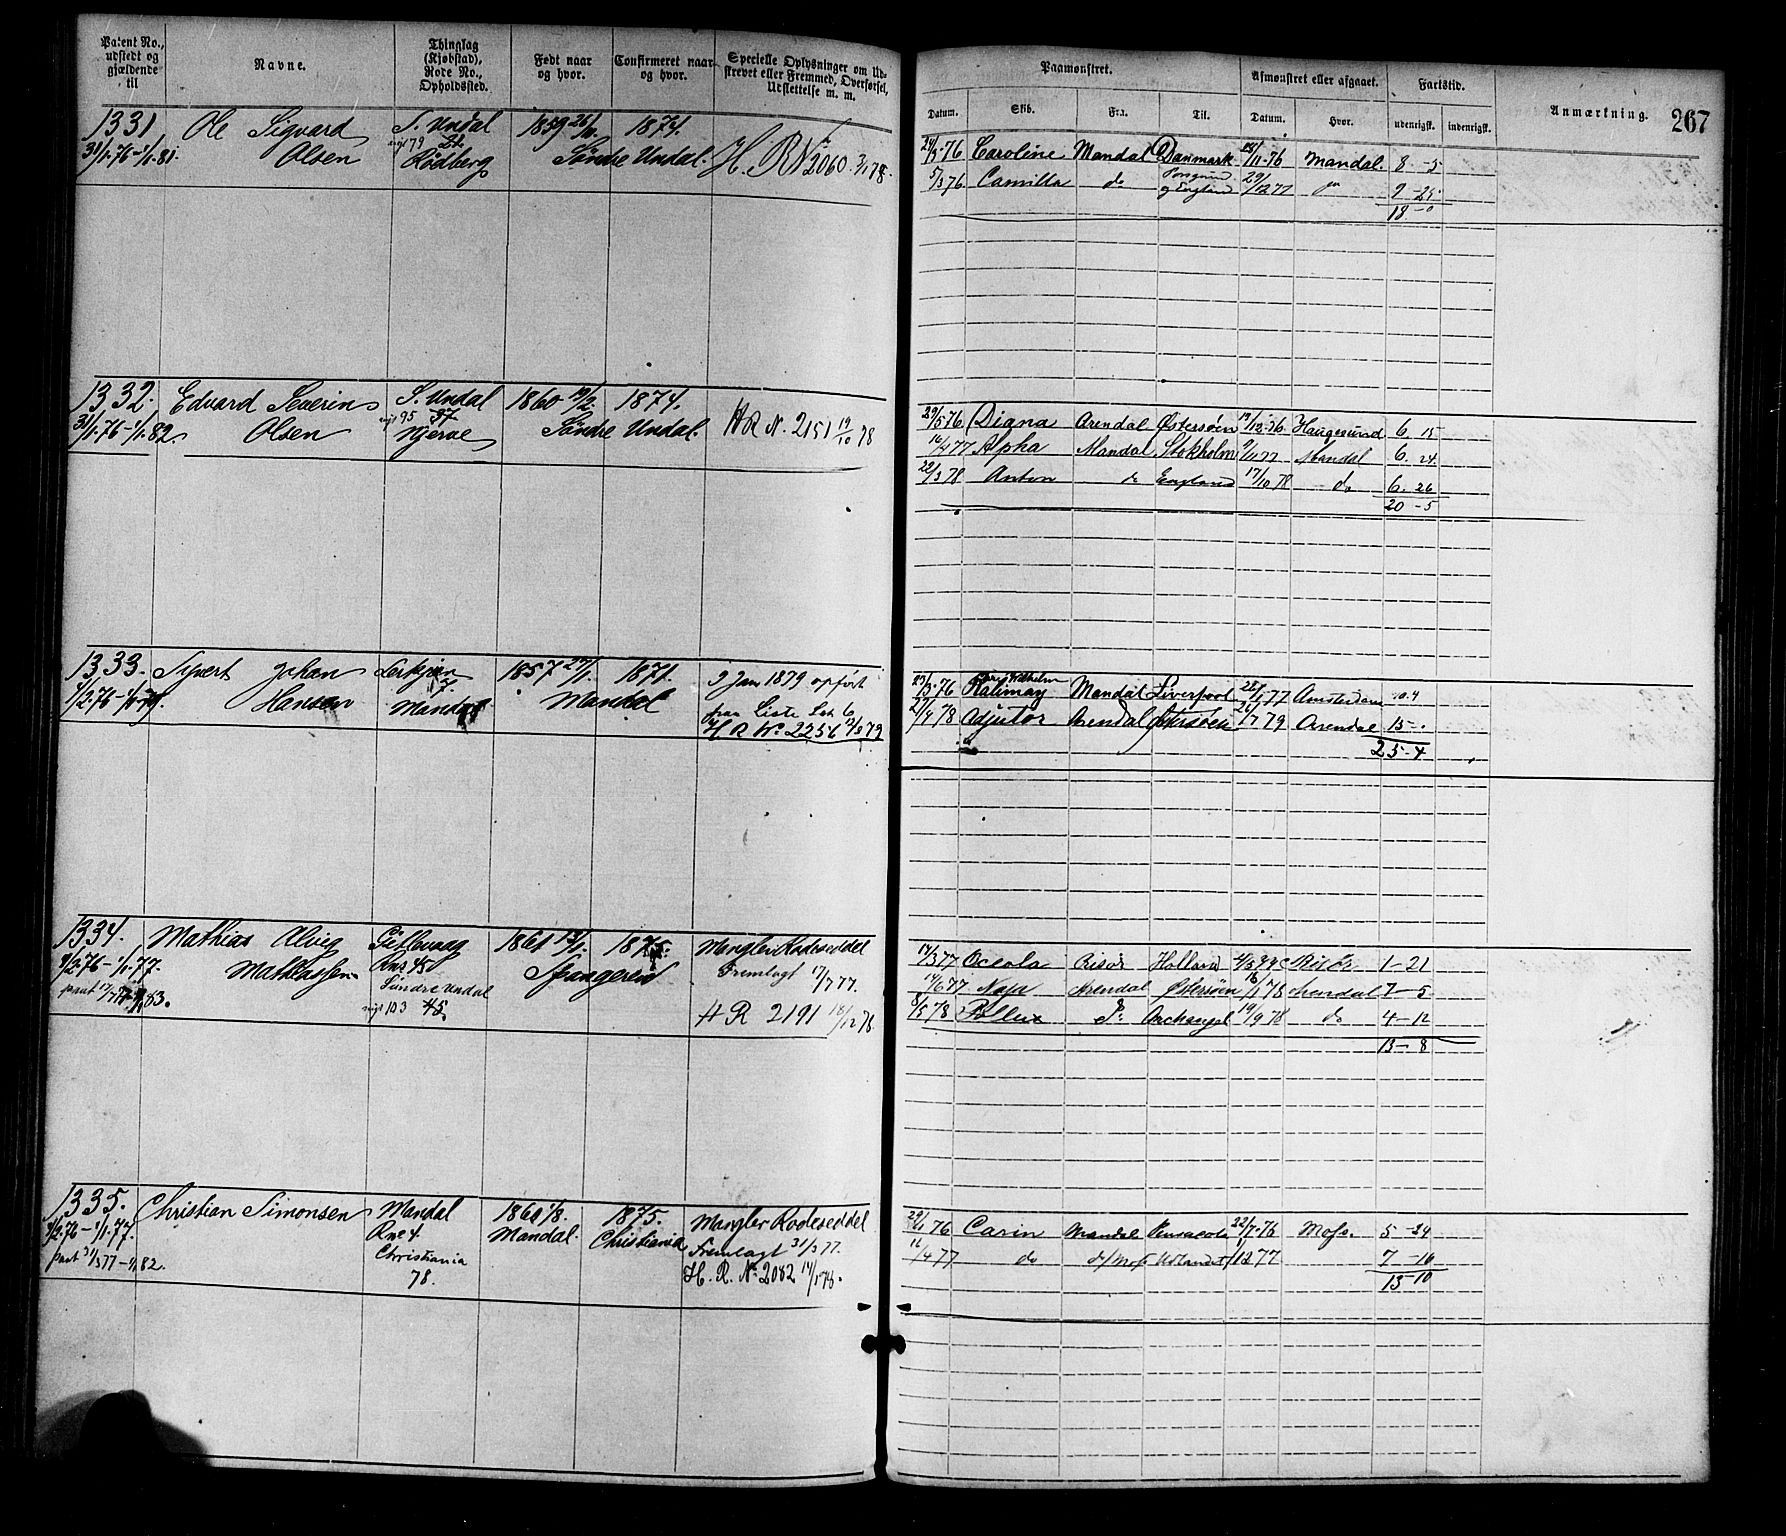 Patent No., udstedt og gjældende til
Navne.
Thinglag (Kjøbstad), Rode No., Opholdssted.
Født naar og hvor.
Confirmeret naar og hvor.
Specielle Oplysninger om Udstrevet eller Fremmed, Overførsel, Udslettelse m. m.
1331 Ole Sigvard S. Undal 1859 26/11 1874.
31/1.76-1/1.81. Olsen Rødberg Søndre Undal. H. R No 2060 3/1 78.
1332. Edvard Severin S. Undal 1860 19/2. 1874.
31/1.76-1/1.82. Olsen 95 37 Njerve Søndre Undal. H R N. 2151 19/10 78
1333. Sivert Johan 1857 27/1. 1871. 9 Jan 1879 opført
Hansen Mandal Mandal fra Liste Lit 6
H R No 2256 79
1334. Mathias Alvig Gitlevaag 1861 13/1. 1875. Mangler Rodeseddel
9/2.76-1/1.77. Mathiassen Rno 45 Spangereid Fremlagt 17/7 77.
Søndre Undal
103 45. H R 2191 18/12 78
1335. Christian Simonsen Mandal 1860 1/8. 1875. Mangler Rodeseddel
9/2.76-1/1.77. Rno 4. Mandal. Christiania Fremlagt 31/3 77.
Christiania
78. H. R. No 2082 14/1 78.
Paamønstret.
Afmønstret eller afgaaet.
Fartstid.
Anmærkning. 267
Datum. Skib. Fra. Til. Datum. Hvor. udenrigsk. indenrigsk.
24/3.76 Caroline Mandal Danmark 18/11.76 Mandal. 8 -5
5/3 76 Camilla do og England 29/12 77 9 -25
18 -0
29/5.76 Diana Arendal Østersøen 19/12.76 Haugesund 6. 15
16/4 77 Alpha Mandal Stokholm 9/11 77 Mandal 6. 24.
22/3 78 Anton do England 17/10 78 do 6. 26
20 -5
Mandal Liverpool Amsterdam 10.4
27/4 78 Adjutor Arendal Østersøen 26/7 79 Arendal 15 -.
25-4
17/3 77 Oceola Risør Holland Risør 1-21
14/6 77 Arendal Østersøen 18/1 78 Arendal 7-5.
8/5 78 Pollux do Archangel 19/9 78 do 4-12
13-8
76 Carin Mandal Pensacola 22/7.76 Moss. 5 -24
16/4 77 do do/Moss Udlandet 12 77 7 -16
13-10